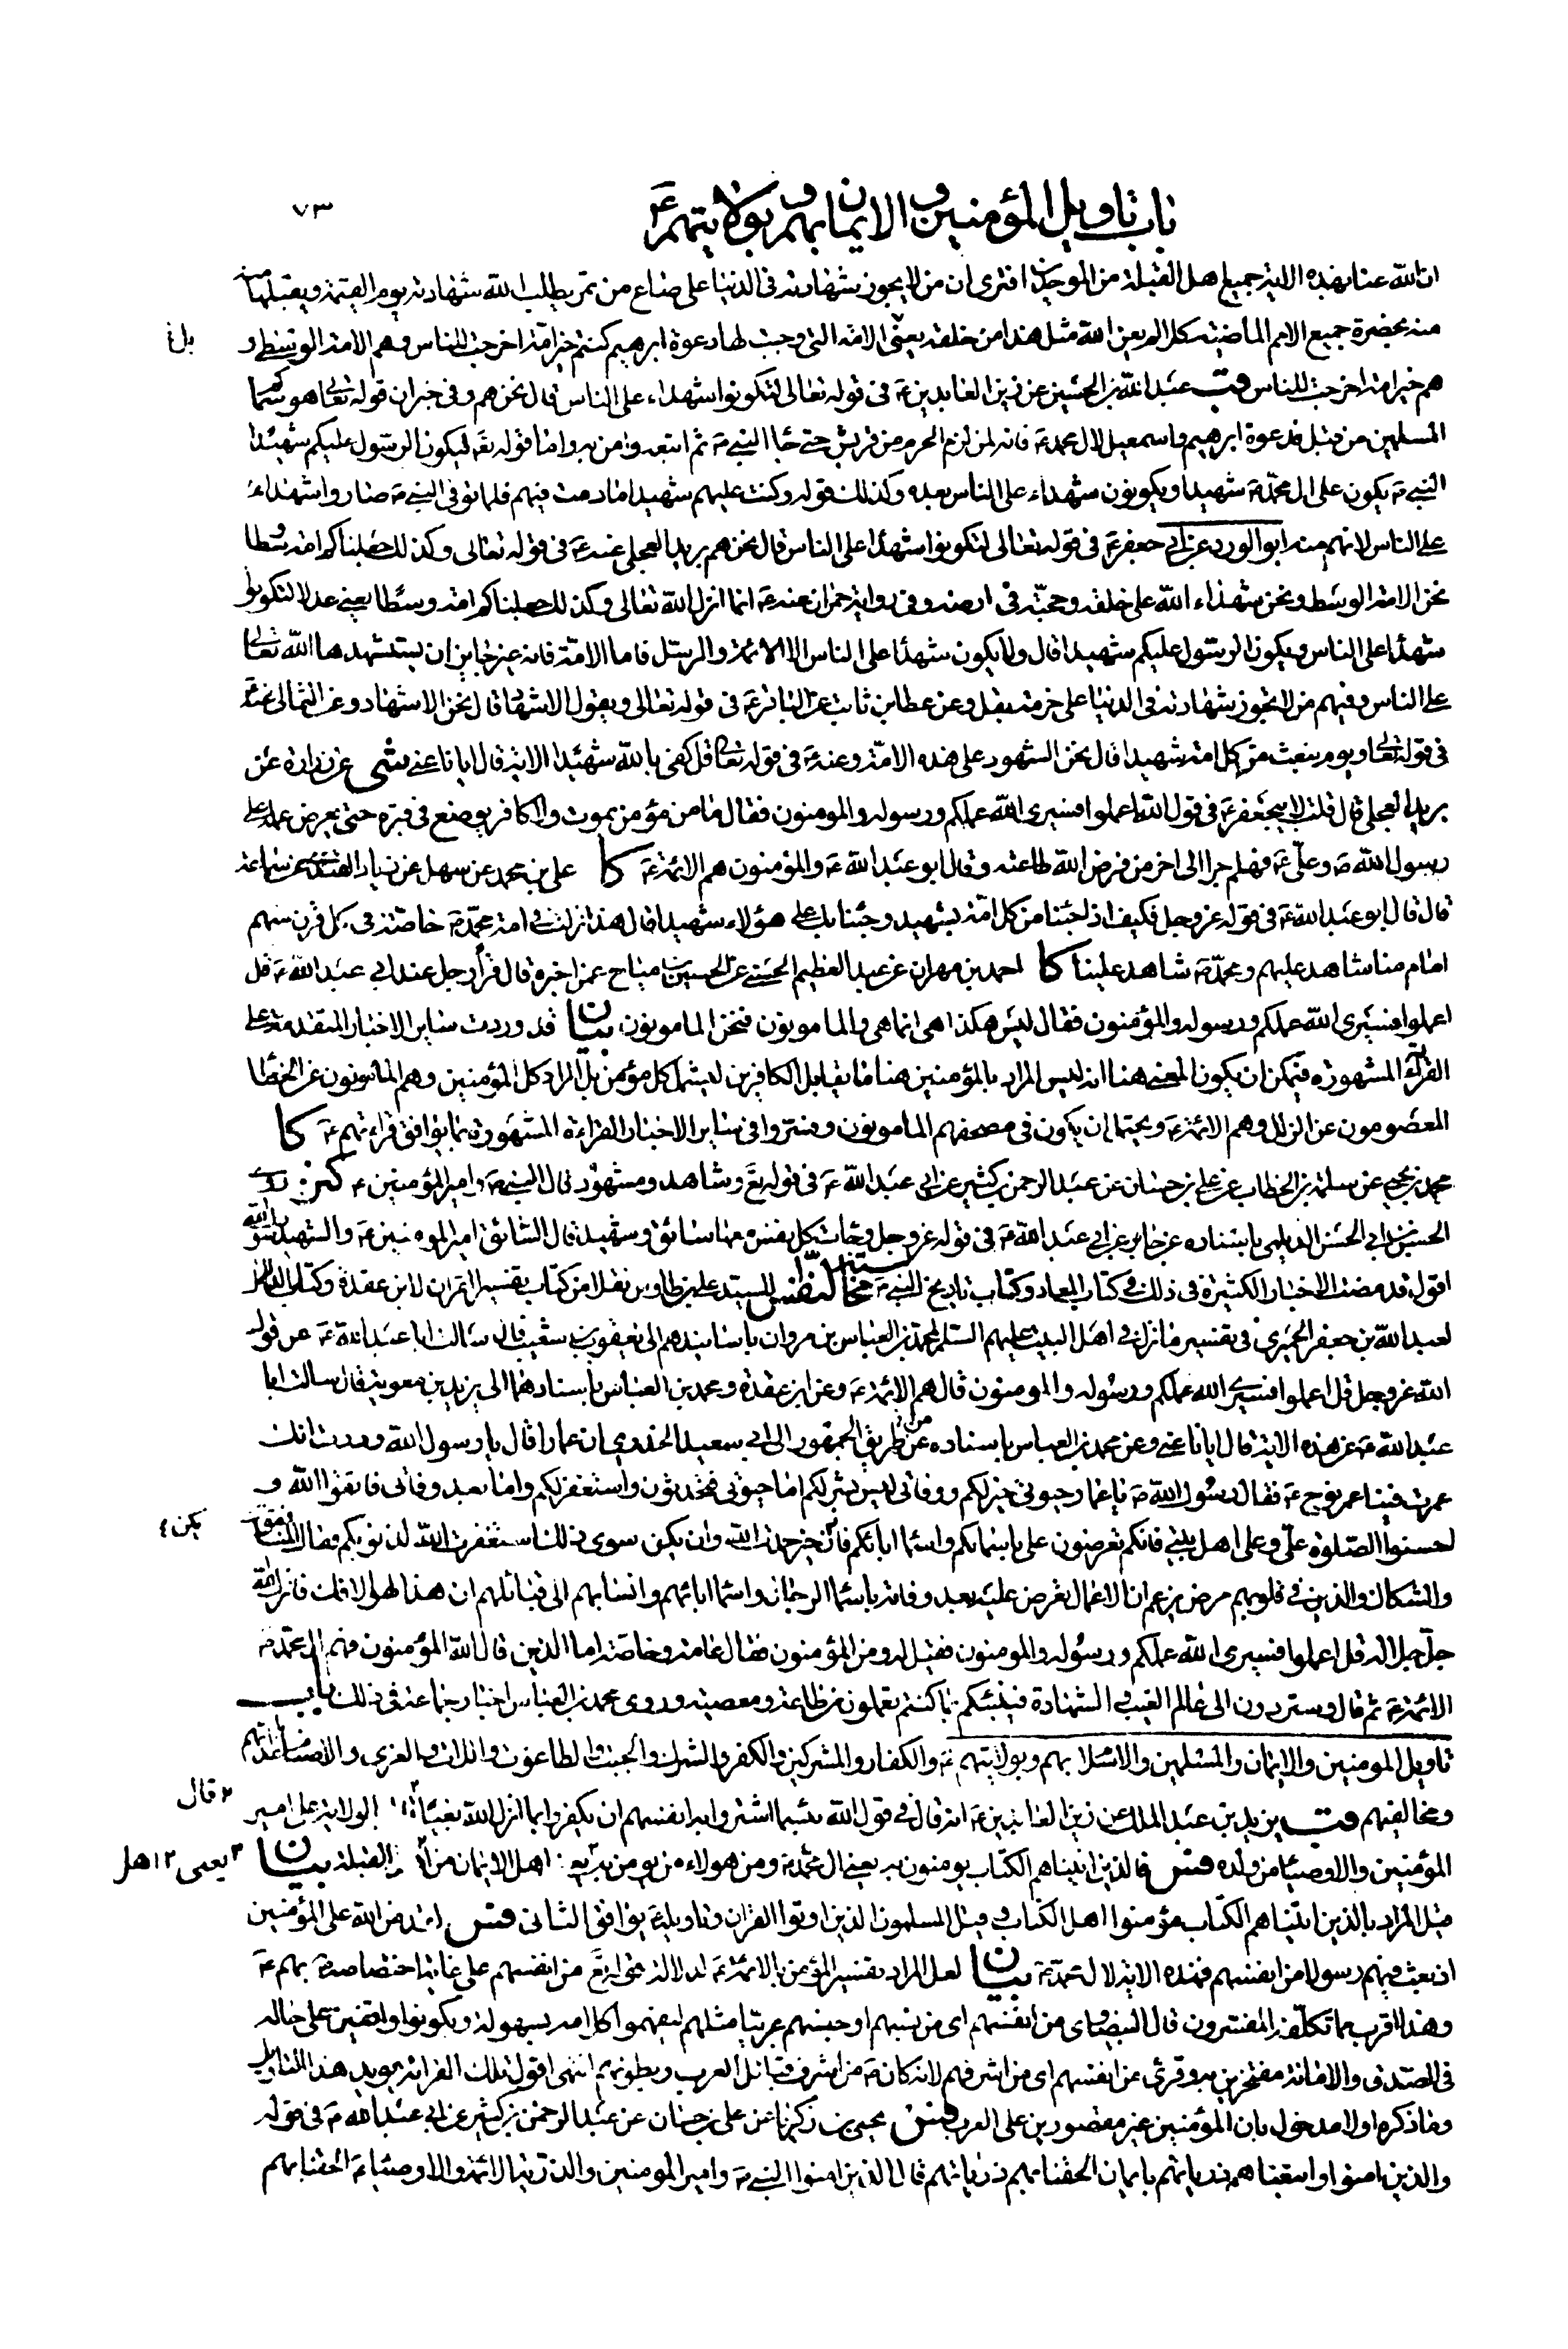 باب تاويل المؤمنين و الايمان بهم و بولايتهم ع
٧٣
ان الله عنا بهذه الاية جميع اهل القبلة من الموحدين افترى ان من لا يجوز شهادته فى الدنيا على صاع من تمر يطلب الله شهادته يوم القيمة و يقبلها منه
منه بحضرة جميع الامم الماضية كلا لم يعن الله مثل هذا من خلقه يعنى الامة التى وجبت لها دعوة ابرهيم كنتم خير امة اخرجت للناس و هم الامة الوسطى و
بل ٤
هم خير امة اخرجت للناس قب عبد الله بن الحسين عن زين العابدين ع فى قوله تعالى لتكونوا شهداء على الناس قال نحن هم و فى خبر ان قوله تعالى هو سماكم
المسلمين من قبل فدعوة ابرهيم و اسمعيل لال محمد ع فانه لمن لزم الحرم من قريش حتى جاء النبى ص ثم اتبعه و امن به و اما قوله تع ليكون الرسول عليكم شهيدا
النبى ص يكون على ال محمد ص شهيدا و يكونون شهداء على الناس بعده و كذلك قوله و كنت عليهم شهيدا ما دمت فيهم فلما توفى النبى ص صاروا شهداء
على الناس لانهم منه ابو الورد عن ابى جعفر ع فى قوله تعالى لتكونوا شهدا على الناس قال نحن هم بريد العجلى عنه ع فى قوله تعالى و كذلك جعلناكم امة وسطا
نحن الامة الوسط و نحن شهداء الله على خلقه و حجته فى ارضه و فى رواية حمران عنه ع انما انزل الله تعالى و كذلك جعلناكم امة وسطا يعنى عدلا لتكونوا
شهدا على الناس و يكون الرسول عليكم شهيدا قال و لا يكون شهدا على الناس الا الائمة و الرسل فاما الامة فانه غير جايز ان يستشهدها الله تعالى
على الناس و فيهم من لا تجوز شهادته فى الدنيا على حزمة بقل و عن عطا بن ثابت عن الباقر ع فى قوله تعالى و يقول الاشهاد قال نحن الاشهاد و عن الثمالى عنه ع
فى قوله تعالى و يوم نبعث من كل امة شهيدا قال نحن الشهود على هذه الامة و عنه ع فى قوله تعالى قل كفى بالله شهيدا الاية قال ايانا عنى شى عن زرارة عن
بريد العجلى قال قلت لابيجعفر ع فى قول الله اعملوا فسيرى الله عملكم و رسوله و المومنون فقال ما من مؤمن يموت و لا كافر يوضع فى قبره حتى يعرض عمله على
رسول الله ص و على ع فهلم جرا الى اخر من فرض الله طاعته و قال ابو عبد الله ع و المؤمنون هم الائمة ع كا على بن محمد عن سهل عن زياد القندى عن سماعة
قال قال ابو عبد الله ع فى قوله عز و جل فكيف اذا جئنا من كل امة بشهيد و جئنا بك على هؤلاء شهيدا قال هذا نزلت فى امة محمد ص خاصة فى كل قرن منهم
امام منا شاهد عليهم و محمد ص شاهد علينا كا احمد بن مهران عن عبد العظيم الحسنى عن الحسين بن مياح عمن اخبره قال قرأ رجل عند ابى عبد الله ع قل
اعملوا فسيرى الله عملكم و رسوله و المؤمنون فقال ليس هكذا هى انما هى و المامونون فنحن المامونون بيان قد وردت ساير الاخبار المتقدمة على
القرائة المشهورة فيمكن ان يكون المعنى هنا انه ليس المراد بالمؤمنين هنا ما يقابل الكافرين ليشمل كل مؤمن بل المراد كل المؤمنين و هم المامونون عن الخطا
المعصومون عن الزلل و هم الائمة ع و يحتمل ان يكون فى مصحفهم المامونون و فسروا فى ساير الاخبار القراءة المشهورة بما يوافق قراءتهم ع كا
محمد بن يحيى عن سلمة بن الخطاب عن على بن حسان عن عبد الرحمن بن كثير عن ابى عبد الله ع فى قوله تع و شاهد و مشهود قال النبى ص و امير المؤمنين ع كنز روى
الحسين بن ابى الحسن الديلمى باسناده عن جابر عن ابى عبد الله ع فى قوله عز و جل و جائت كل نفس معها سائق و شهيد قال السائق امير المومنين ع و الشهيد رسول الله ص
اقول قد مضت الاخبار الكثيرة فى ذلك فى كتاب المعاد و كتاب تاريخ النبى ص محاسبة النفس للسيد على بن طاوس نقلا من كتاب تفسير القران لابن عقدة و كتاب الدلائل
لعبد الله بن جعفر الحميرى فى تفسير ما نزل فى اهل البيت عليهم السلم لمحمد بن العباس بن مروان باسانيدهم الى يعقوب بن شعيب قال سالت ابا عبد الله ع عن قول
الله عز و جل قل اعملوا فسيرى الله عملكم و رسوله و المومنون قال هم الائمة ع و عن ابن عقدة و محمد بن العباس باسنادهما الى بريد بن معوية قال سالت ابا
عبد الله ع عن هذه الاية قال ايانا عنى و عن محمد بن العباس باسناده من طريق الجمهور الى ابى سعيد الخدرى ان عمارا قال يا رسول الله وددت انك
عمرت فينا عمر نوح ع فقال رسول الله ص يا عمار حيوتى خير لكم و وفاتى ليس بشر لكم اما حيوتى فتحدثون و استغفر لكم و اما بعد وفاتى فاتقوا الله و
احسنوا الصلوة على و على اهل بيتى فانكم تعرضون على باسمائكم و اسماء ابائكم فان خير حمدت الله و ان يكن سوى ذلك استغفرت الله لذنوبكم فقال المنافقون
يكن ٤
و الشكاك و الذين فى قلوبهم مرض يزعم ان الاعمال تعرض عليه بعد وفاته باسماء الرجال و اسماء ابائهم و انسابهم الى قبائلهم ان هذا لهو الافك فانزل الله
جل جلاله قل اعملوا فسيرى الله عملكم و رسوله و المومنون فقيل له و من المؤمنون فقال عامة و خاصة اما الذين قال الله المؤمنون فهم ال محمد ص
الائمة ع ثم قال و ستردون الى عالم الغيب و الشهادة فينبئكم بما كنتم تعملون من طاعة و معصية و روى محمد بن العباس اخبار جماعة فى ذلك باب
تاويل المومنين و الايمان و المسلمين و الاسلام بهم و بولايتهم ع و الكفار و المشركين و الكفر و الشرك و الجبت و الطاغوت و اللات و العزى و الاصنام باعدائهم
و مخالفيهم قب يزيد بن عبد الملك عن زين العابدين ع انه قال فى قول الله بئسما اشتروا به انفسهم ان يكفروا بما انزل الله بغيا الولاية على امير
٢ قال
المؤمنين و الاوصيا من ولده فس فالذين اتيناهم الكتاب يومنون به يعنى ال محمد ص و من هولاء من يومن به اهل الايمان من القبلة بيان
٣ يعنى ١٢ اهل
قيل المراد بالذين اتيناهم الكتاب مؤمنوا اهل الكتاب و قيل المسلمون الذين اوتوا القران و تاويله ع يوافق الثانى فس لقد من الله على المؤمنين
اذ بعث فيهم رسولا من انفسهم فهذه الاية لال محمد ص بيان لعل المراد تفسير المؤمن بالائمة ع لدلالة من انفسهم على غاية اختصاصه ص بهم ع
و هذا اقرب مما تكلفه المفسرون قال البيضاوى من انفسهم اى من نسبهم او جنسهم عربيا مثلهم ليفهموا كلامه بسهولة و يكونوا واقفين على حاله
فى الصدق و الامانة مفتخرين به و قرئ من انفسهم اى من اشرفهم لانه كان ص من اشرف قبائل العرب و بطونهم انتهى اقول تلك القرائة يويد هذا التاويل
و ما ذكره اولا مدخول بان المؤمنين غير مقصورين على العرب فس يحيى بن زكريا عن على بن حسان عن عبد الرحمن بن كثير عن ابى عبد الله ع فى قوله
و الذين امنوا و اتبعناهم ذرياتهم بايمان الحقنا بهم ذرياتهم قال الذين امنوا النبى ص و امير المومنين و الذرية الائمة و الاوصياء ع الحقنا بهم